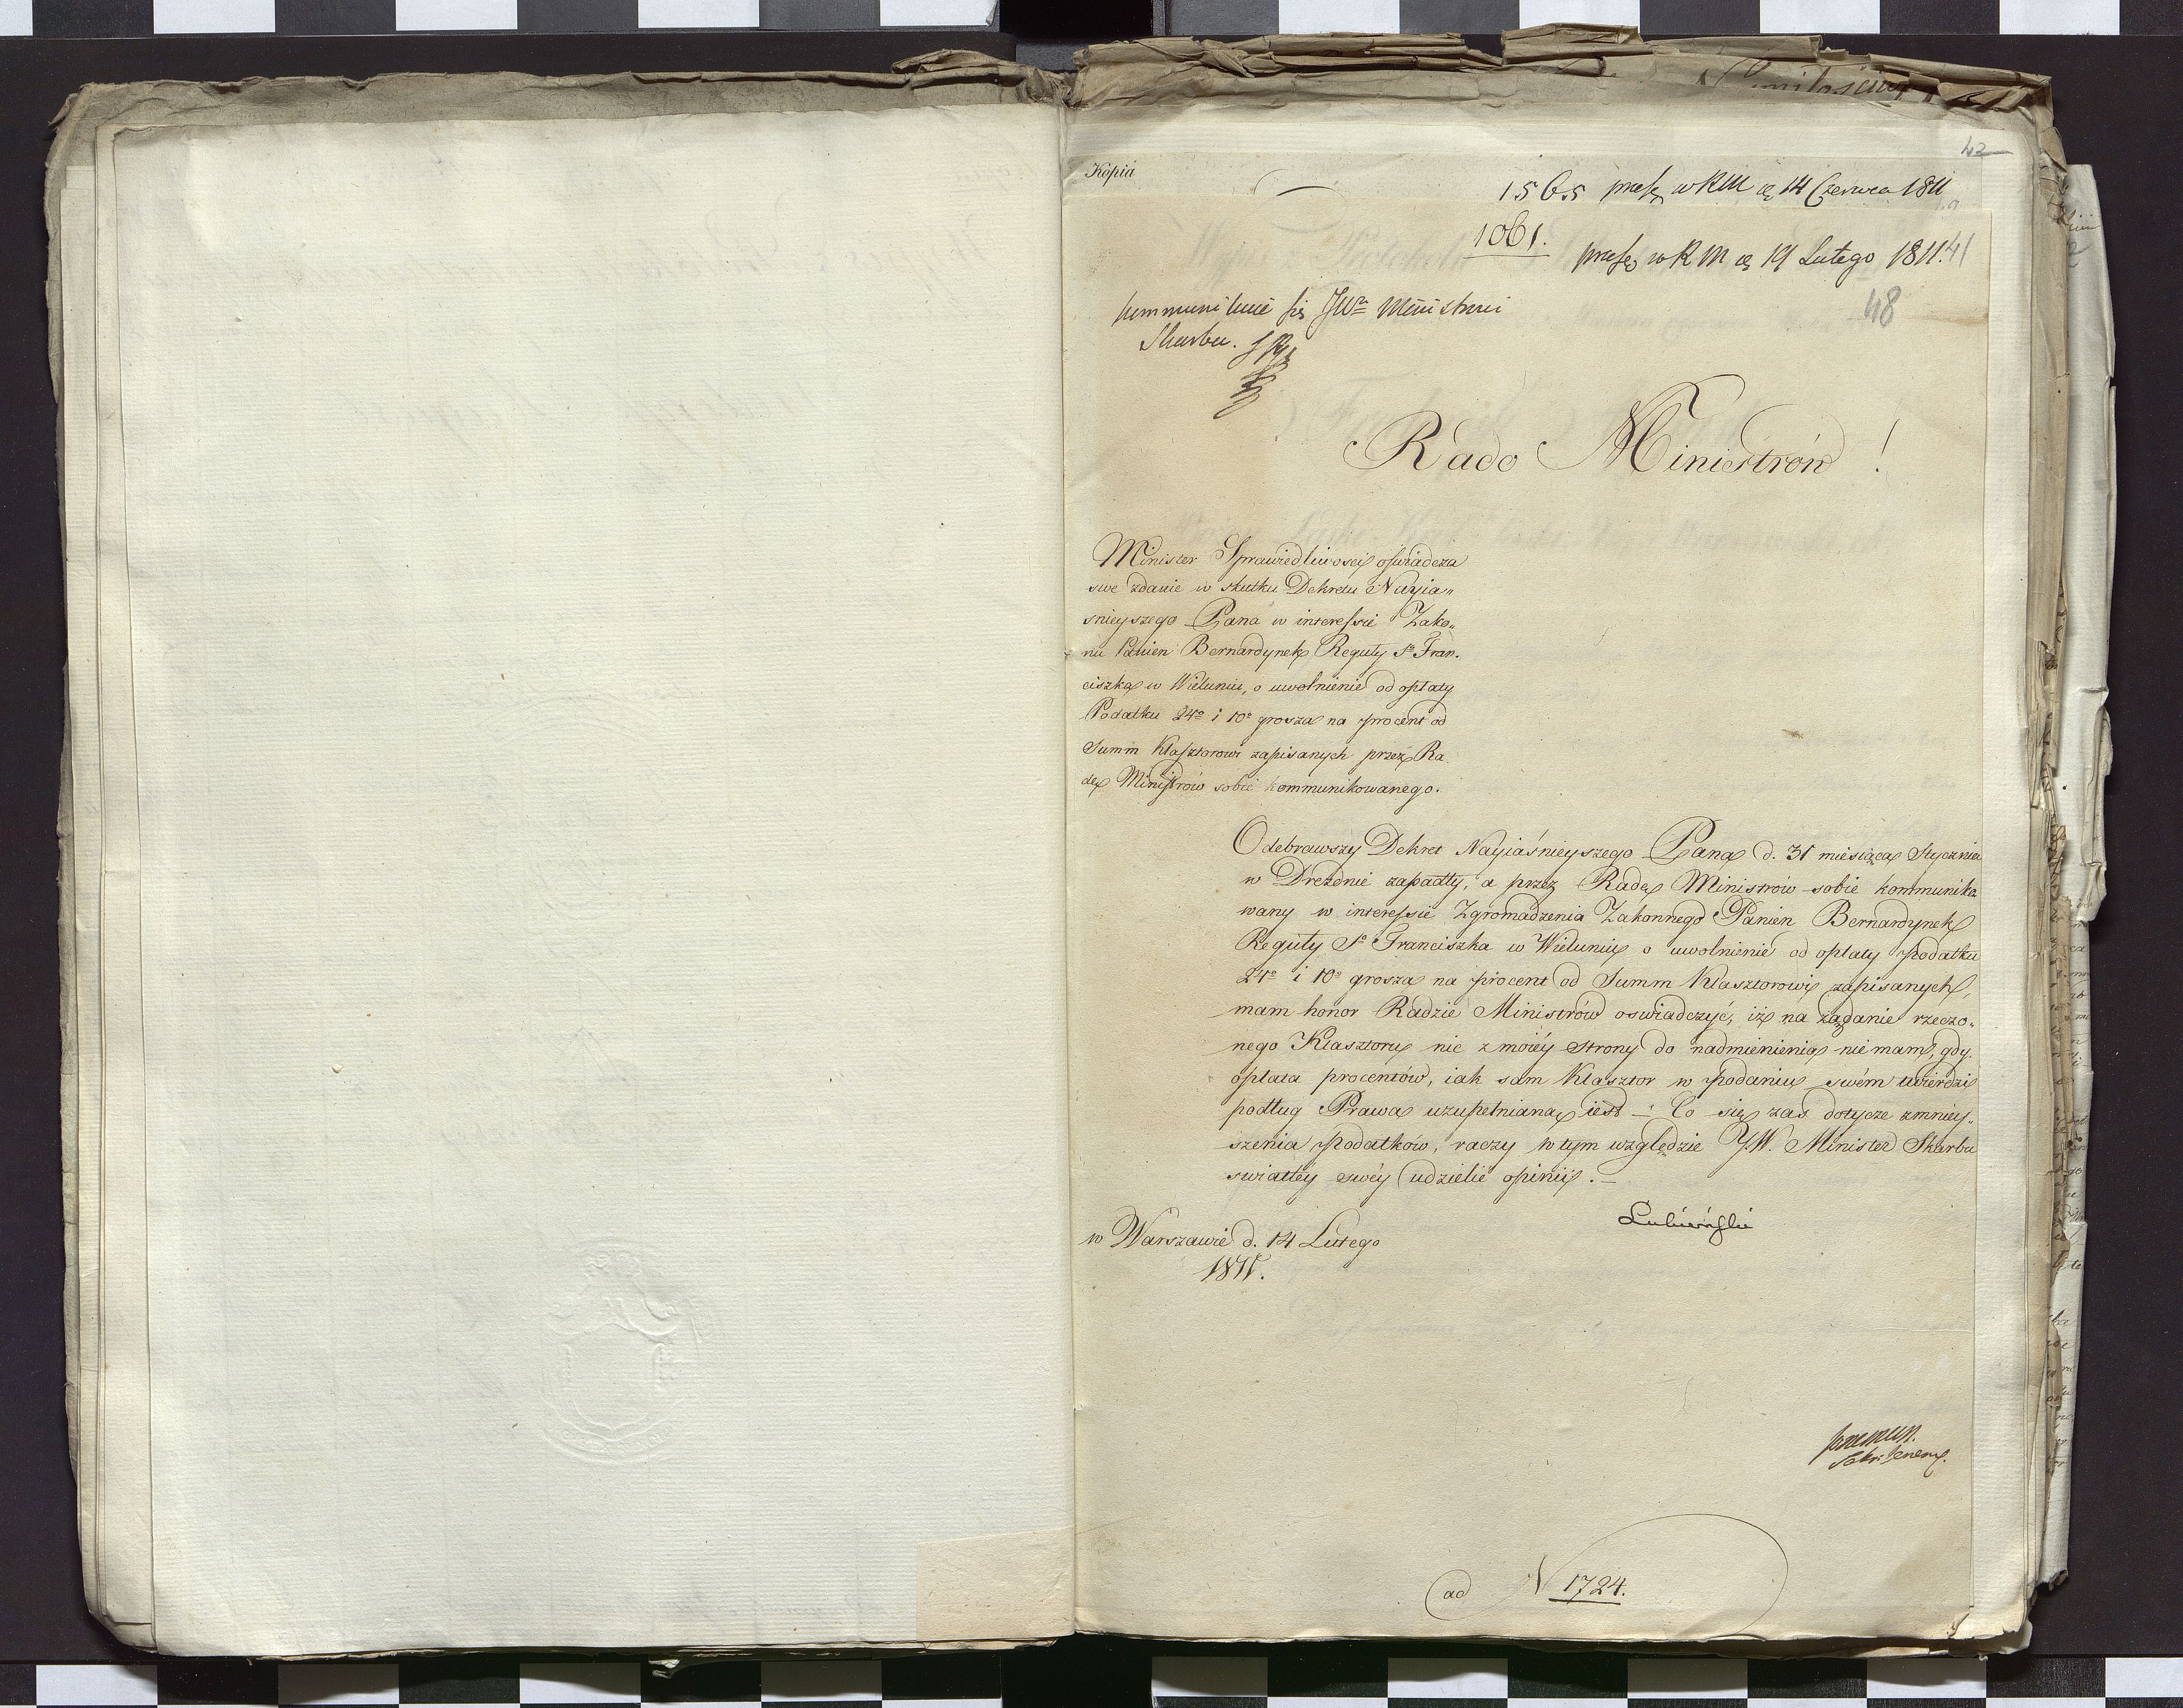 42
Kopia
1565 präsę w RM dę 14 Czerwca 1811
1061.
präsę w RM dę 19 Lutego 1811.
41
48
kommunikuie się JWu Ministrowi
Skarbu.
Rado Ministrów !
Minister Sprawiedliwosci oswiadcza
swe zdanie w skutku Dekretu Nayia„
snieyszego Pana w interessie Zako„
nu Panien Bernardynek Reguły So Fran„
ciszka w Wieluniu, o uwolnienie od opłaty
Podatku 24o i 10o grosza na procent od
Summ Klasztorowi zapisanych przez Ra
dę Ministrów sobie kommunikowanego.
Odebrawszy Dekret Nayiaśnieyszego Pana d. 31 miesiąca Stycznia
w Dreznie zapadły, a przez Radę Ministrów sobie kommuniko
wany w interessie Zgromadzenia Zakonnego Panien Bernardynek
Reguły So Franciszka w Wieluniu o uwolnienie od opłaty podatku
24o i 10o grosza na procent od Summ Klasztorowi zapisanych,
mam honor Radzie Ministrów oswiadczyć, iż na żądanie rzeczo„
nego Klasztoru nic z moiéy strony do nadmienienia nie mam, gdy
opłata procentów, iak sam Klasztor w podaniu swém twierdzi
podług Prawa uzupełnianą iest –: Co się zas dotycze zmniey„
szenia podatków, raczy w tym względzie J.W. Minister Skarbu
swiatłey swéy udzielić opinii. –
Lubieński
w Warszawie d. 14 Lutego
1811.
Sekr: Jener.
ad N 1724.